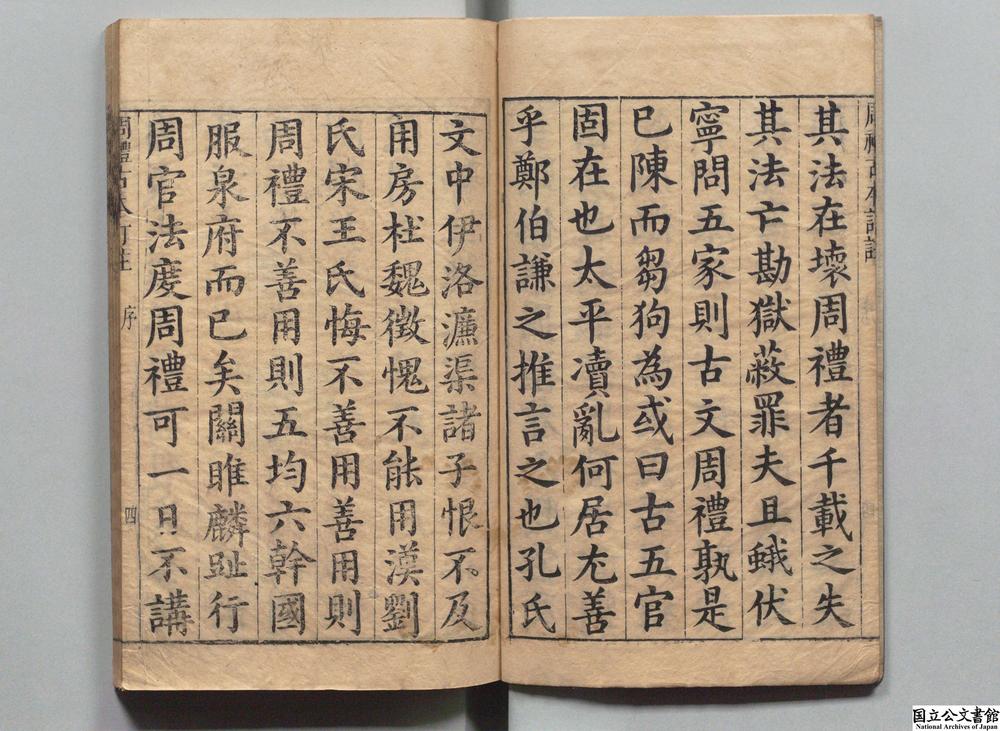 其法在壞周禮者千載之失
其法亡勘獄蔽罪夫且蛾伏
寧問五家則古文周禮孰是
已陳而芻狗為或曰古五官
固在也太平瀆亂何居尤善
乎鄭伯謙之推言之也孔氏
文中伊洛濂渠諸子恨不及
用房杜魏徵愧不能用漢劉
氏宋王氏悔不善用善用則
周禮不善用則五均六幹國
服泉府而已矣關雎麟趾行
周官法度周禮可一日不講
序
四
国立公文書館
National Archives of Japan